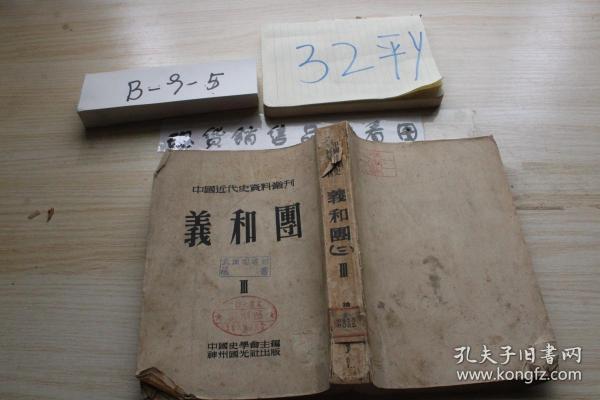 B-9-5
32平Y
现货销售品相看图
中國近代史資料叢刊
義和團
III
中國史學會主編
神州國光社出版
義和團(三)
III
孔夫子旧书网
www.kongfz.com